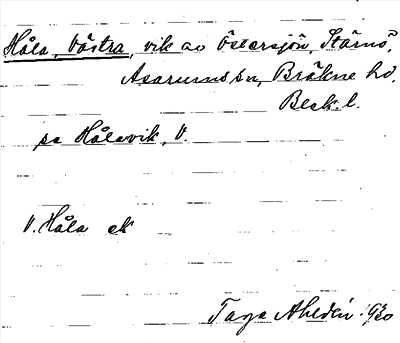 Håla, Västra, vik av Östersjön, Stärnö,
Asarums sn, Bräkne hd,
Blek. l.
se Hålavik, V.
V. Håla ek
Taga Ahldén 1930